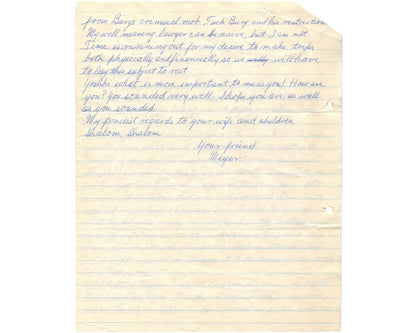 from Burgs criminal mob. Fuck Burg and his restriction
My well meaning lawyer can be naive, but I am not
Time is running out for my desire to make trip
both physically and financially, so we will have
to lay this subject to rest
Yoshki what is more important to me is you! How are
you? You sounded very well. I hope you are as well
as you sounded.
My fondest regards to your wife and children
Shalom, Shalom
Your friend
Meyer